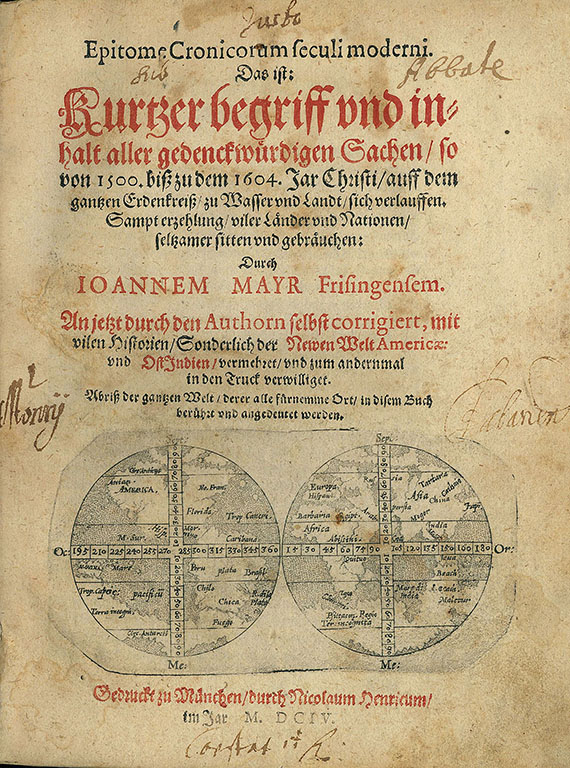 Justo
Epitome Cronicorum seculi moderni.
sub Abbate
Das ist:
Kurtzer begriff vnd in-
halt aller gedenckwürdigen Sachen/ so
von 1500. biß zu dem 1604. Jar Christi/ auff dem
gantzen Erdenkreiß/ zu Wasser vnd Landt/ sich verlauffen.
Sampt erzehlung/ viler Länder vnd Nationen/
seltzamer sitten vnd gebräuchen:
Durch
IOANNEM MAYR Frisingensem.
An jetzt durch den Authorn selbst corrigiert, mit
vilen Historien/ Sonderlich der Newen Welt Americæ:
vnd OstIndien/ vermehret/ vnd zum andernmal
in den Truck verwilliget.
Abriß der gantzen Welt/ derer alle fürneme Ort/ in disem Buch
berührt vnd angedeutet werden.
Sept: Sept:
AMERICA. No. Fran. Europa Asia Tartaria
Hispani. China
Florida Barbaria
Trop. Cancri. Africa India
M. Sur. Caribana
Oc: 195 210 225 240 255 270 285 300 315 330 345 360 15 30 45 60 74 90 105 120 135 150 160 180 Or:
Mare Plata Brasil
Trop. Capric: pacificū Chile
Terra incogni. Chica Plata
Fuego Ter: incognita
Me: Me:
Gedruckt zu München/ durch Nicolaum Henricum/
im Jar M. DCIV.